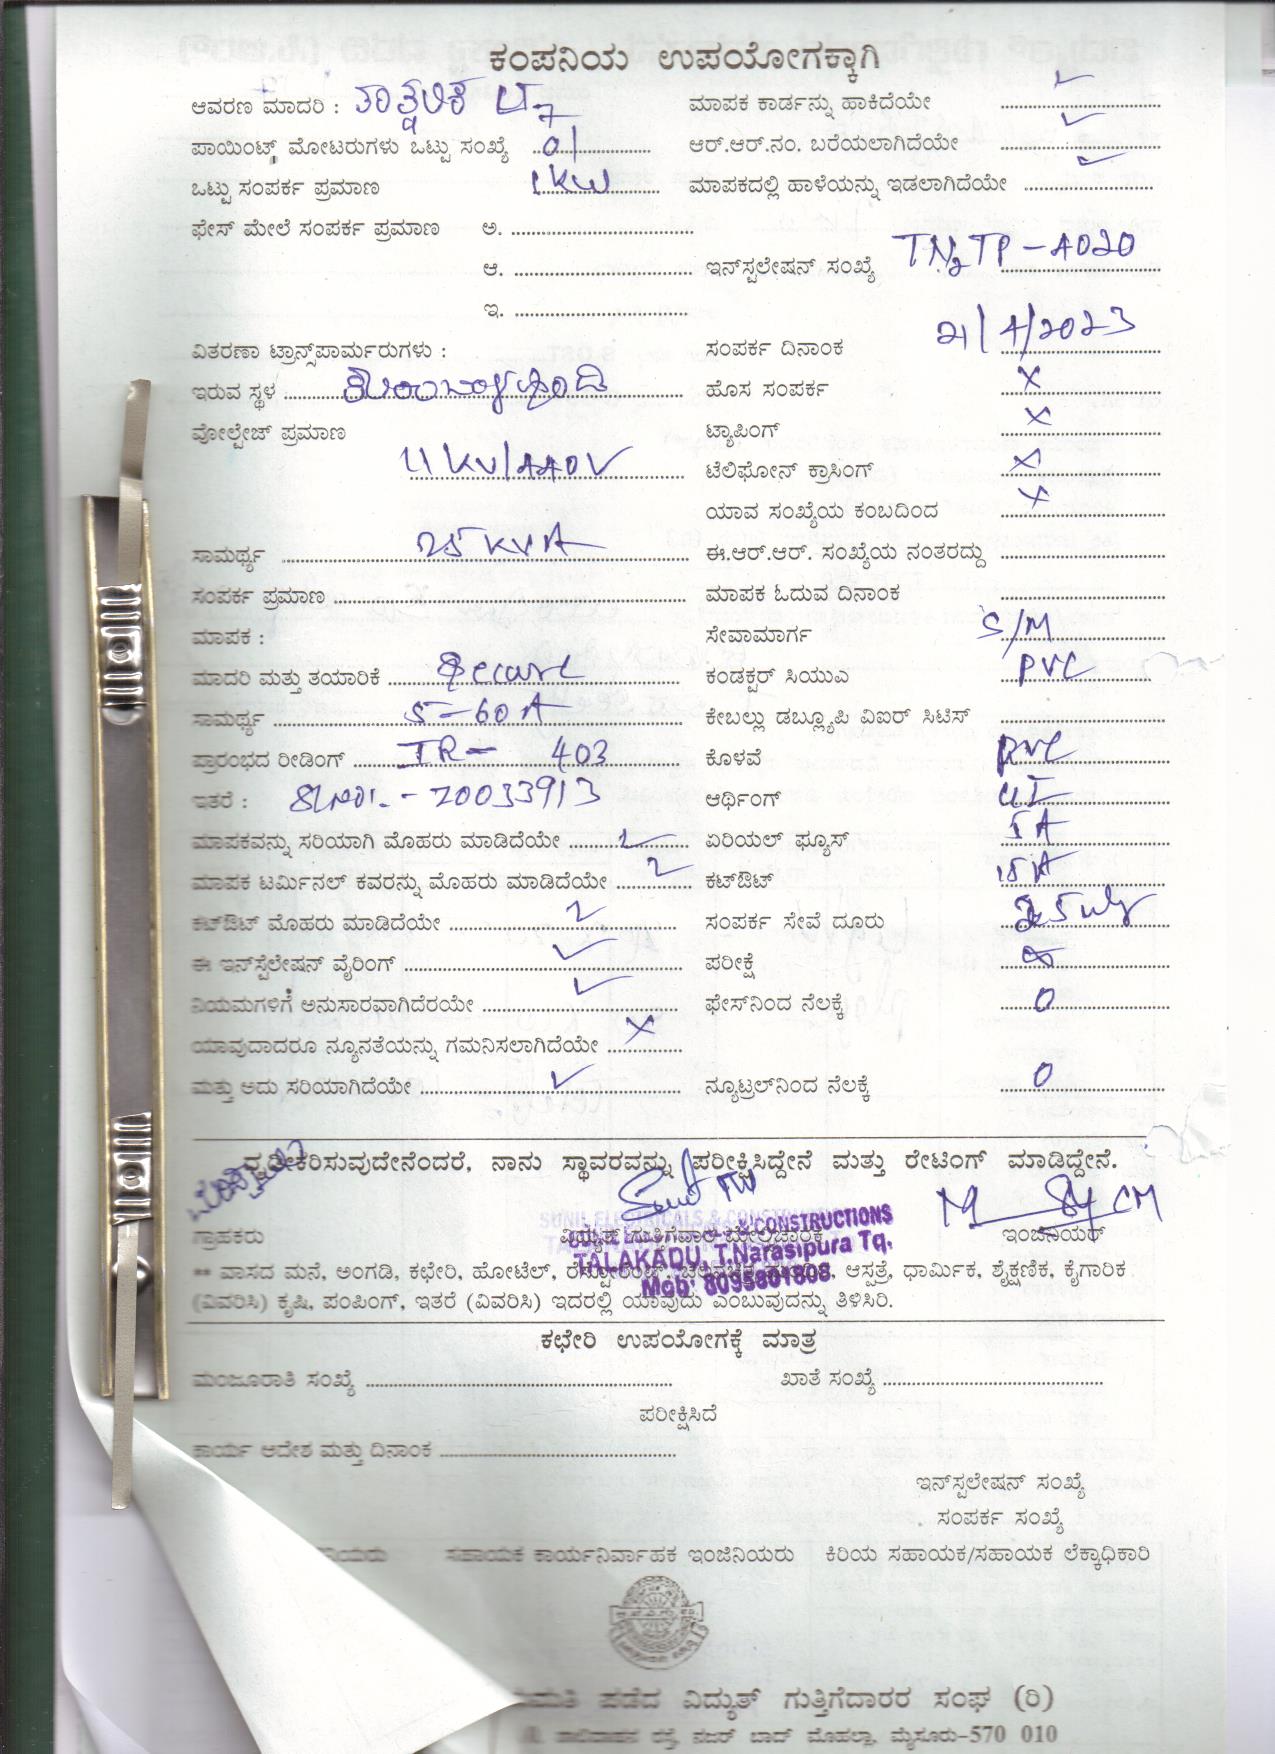 ಕಂಪನಿಯ ಉಪಯೋಗಕ್ಕಾಗಿ
ಆವರಣ ಮಾದರಿ : ತಾತ್ಕಾಲಿಕ LT7 ಮಾಪಕ ಕಾರ್ಡನ್ನು ಹಾಕಿದೆಯೇ ✓
ಪಾಯಿಂಟ್ಸ್ ಮೋಟರುಗಳು ಒಟ್ಟು ಸಂಖ್ಯೆ 01 ಆರ್.ಆರ್.ನಂ. ಬರೆಯಲಾಗಿದೆಯೇ ✓
ಒಟ್ಟು ಸಂಪರ್ಕ ಪ್ರಮಾಣ 1KW ಮಾಪಕದಲ್ಲಿ ಹಾಳೆಯನ್ನು ಇಡಲಾಗಿದೆಯೇ ✓
ಫೇಸ್ ಮೇಲೆ ಸಂಪರ್ಕ ಪ್ರಮಾಣ ಅ.
ಆ. ಇನ್‌ಸ್ಟಲೇಷನ್ ಸಂಖ್ಯೆ TN2TP-4020
ಇ.
ವಿತರಣಾ ಟ್ರಾನ್ಸ್‌ಪಾರ್ಮರುಗಳು : ಸಂಪರ್ಕ ದಿನಾಂಕ 21/4/2023
ಇರುವ ಸ್ಥಳ ಹೊಸ ಸಂಪರ್ಕ ×
ವೋಲ್ಟೇಜ್ ಪ್ರಮಾಣ ಟ್ಯಾಪಿಂಗ್ ×
11KV/440V ಟೆಲಿಫೋನ್ ಕ್ರಾಸಿಂಗ್ ×
ಯಾವ ಸಂಖ್ಯೆಯ ಕಂಬದಿಂದ ×
ಸಾಮರ್ಥ್ಯ 25KVA ಈ.ಆರ್.ಆರ್. ಸಂಖ್ಯೆಯ ನಂತರದ್ದು
ಸಂಪರ್ಕ ಪ್ರಮಾಣ ಮಾಪಕ ಓದುವ ದಿನಾಂಕ
ಮಾಪಕ : ಸೇವಾಮಾರ್ಗ S/M
ಮಾದರಿ ಮತ್ತು ತಯಾರಿಕೆ Secure ಕಂಡಕ್ಟರ್ ಸಿಯುಎ PVC
ಸಾಮರ್ಥ್ಯ 5-60A ಕೇಬಲ್ಲು ಡಬ್ಲ್ಯೂಪಿ ವಿಐರ್ ಸಿಟಿಸ್
ಪ್ರಾರಂಭದ ರೀಡಿಂಗ್ IR- 403 ಕೊಳವೆ PVC
ಇತರೆ : Sl.No.-20033913 ಆರ್ಥಿಂಗ್ GI
ಮಾಪಕವನ್ನು ಸರಿಯಾಗಿ ಮೊಹರು ಮಾಡಿದೆಯೇ 2 ಏರಿಯಲ್ ಫ್ಯೂಸ್ 5A
ಮಾಪಕ ಟರ್ಮಿನಲ್ ಕವರನ್ನು ಮೊಹರು ಮಾಡಿದೆಯೇ 2 ಕಟ್‌ಔಟ್ 15A
ಕಟ್‌ಔಟ್ ಮೊಹರು ಮಾಡಿದೆಯೇ 2 ಸಂಪರ್ಕ ಸೇವೆ ದೂರು
ಈ ಇನ್‌ಸ್ಟೆಲೇಷನ್ ವೈರಿಂಗ್ ✓ ಪರೀಕ್ಷೆ
ನಿಯಮಗಳಿಗೆ ಅನುಸಾರವಾಗಿದೆರಯೇ ✓ ಫೇಸ್‌ನಿಂದ ನೆಲಕ್ಕೆ 0
ಯಾವುದಾದರೂ ನ್ಯೂನತೆಯನ್ನು ಗಮನಿಸಲಾಗಿದೆಯೇ ×
ಮತ್ತು ಅದು ಸರಿಯಾಗಿದೆಯೇ ✓ ನ್ಯೂಟ್ರಲ್‌ನಿಂದ ನೆಲಕ್ಕೆ 0
ದೃಢೀಕರಿಸುವುದೇನೆಂದರೆ, ನಾನು ಸ್ಥಾವರವನ್ನು ಪರೀಕ್ಷಿಸಿದ್ದೇನೆ ಮತ್ತು ರೇಟಿಂಗ್ ಮಾಡಿದ್ದೇನೆ.
ಗ್ರಾಹಕರು ವಿದ್ಯುತ್ ಗುತ್ತಿಗೆದಾರ ಮೇಲ್ವಿಚಾರಕ ಇಂಜಿನಿಯರ್
SUNIL ELECTRICALS & CONSTRUCTIONS
TALAKADU, T.Narasipura Tq.
Mob: 8095801808
** ವಾಸದ ಮನೆ, ಅಂಗಡಿ, ಕಛೇರಿ, ಹೋಟೆಲ್, ರೆಸ್ಟೋರೆಂಟ್, ಆಸ್ಪತ್ರೆ, ಧಾರ್ಮಿಕ, ಶೈಕ್ಷಣಿಕ, ಕೈಗಾರಿಕ
(ವಿವರಿಸಿ) ಕೃಷಿ, ಪಂಪಿಂಗ್, ಇತರೆ (ವಿವರಿಸಿ) ಇದರಲ್ಲಿ ಯಾವುದು ಎಂಬುವುದನ್ನು ತಿಳಿಸಿರಿ.
ಕಛೇರಿ ಉಪಯೋಗಕ್ಕೆ ಮಾತ್ರ
ಮಂಜೂರಾತಿ ಸಂಖ್ಯೆ ಖಾತೆ ಸಂಖ್ಯೆ
ಪರೀಕ್ಷಿಸಿದೆ
ಕಾರ್ಯ ಆದೇಶ ಮತ್ತು ದಿನಾಂಕ
ಇನ್‌ಸ್ಟಲೇಷನ್ ಸಂಖ್ಯೆ
ಸಂಪರ್ಕ ಸಂಖ್ಯೆ
ನಿಯರು ಸಹಾಯಕ ಕಾರ್ಯನಿರ್ವಾಹಕ ಇಂಜಿನಿಯರು ಕಿರಿಯ ಸಹಾಯಕ/ಸಹಾಯಕ ಲೆಕ್ಕಾಧಿಕಾರಿ
ಮತಿ ಪಡೆದ ವಿದ್ಯುತ್ ಗುತ್ತಿಗೆದಾರರ ಸಂಘ (ರಿ)
ಶಾಲಿವಾಹನ ರಸ್ತೆ, ನಜರ್ ಬಾದ್ ಮೊಹಲ್ಲಾ, ಮೈಸೂರು-570 010